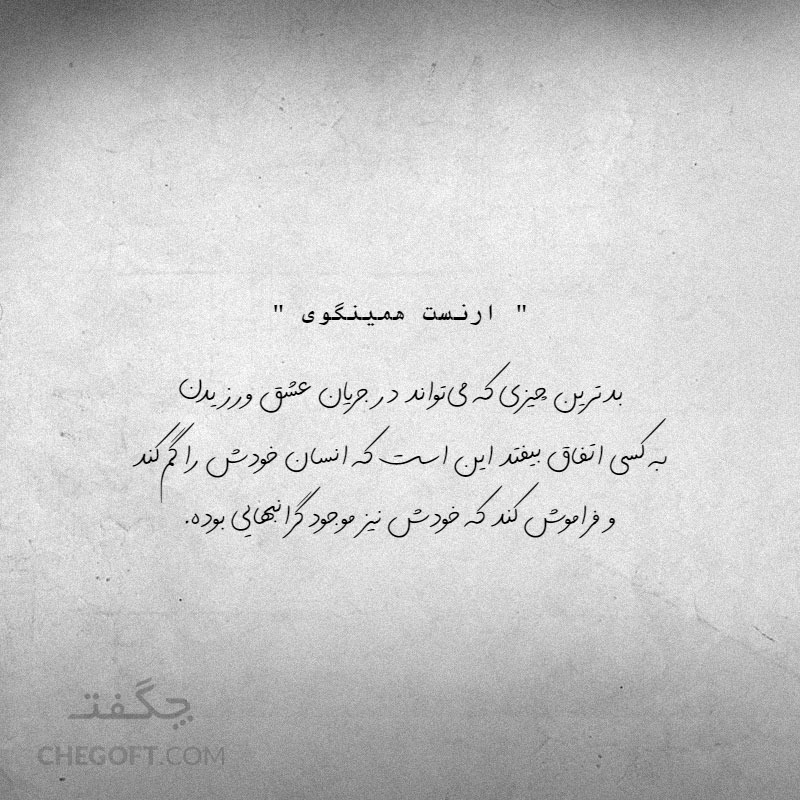 " ارنست همینگوی "
بدترین چیزی که می‌تواند در جریان عشق ورزیدن
به کسی اتفاق بیفتد این است که انسان خودش را گم کند
و فراموش کند که خودش نیز موجود گرانبهایی بوده.
چگفت
CHEGOFT.COM